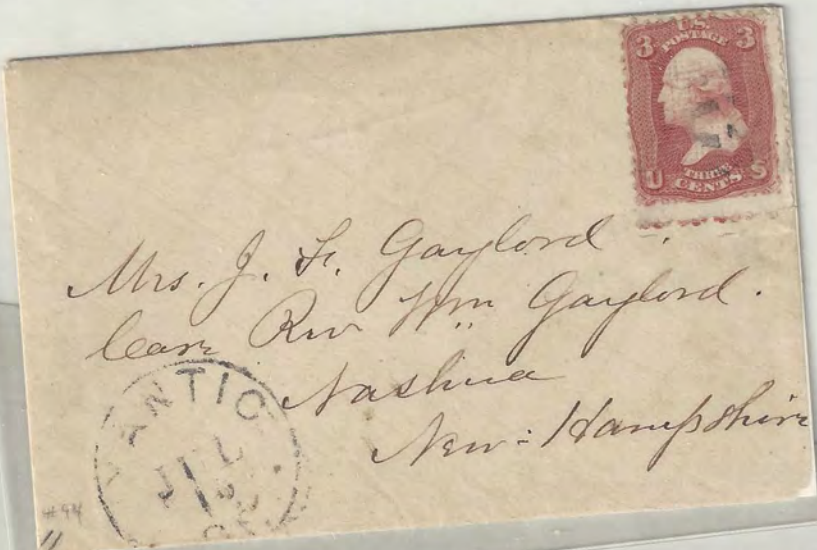 U.S.
POSTAGE
3 3
THREE
CENTS
U S
Mrs. J. F. Gaylord.
Care Rev Wm Gaylord.
Nashua
New-Hampshire
YANTIC
JUL
#94
11